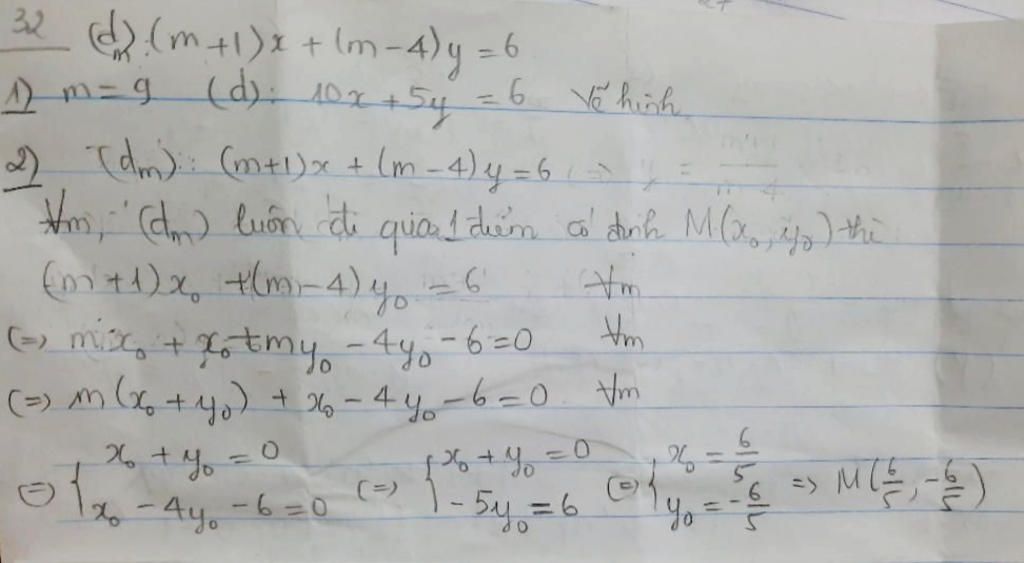 32 (d_m): (m+1)x + (m-4)y = 6
1) m = 9 (d): 10x + 5y = 6 Vẽ hình
2) (d_m): (m+1)x + (m-4)y = 6
∀m, (d_m) luôn đi qua 1 điểm cố định M(x₀, y₀) thì
(m+1)x₀ + (m-4)y₀ = 6 ∀m
(=) mx₀ + x₀ + my₀ - 4y₀ - 6 = 0 ∀m
(=) m(x₀ + y₀) + x₀ - 4y₀ - 6 = 0 ∀m
(=) { x₀ + y₀ = 0 ; x₀ - 4y₀ - 6 = 0 (=) { x₀ + y₀ = 0 ; -5y₀ = 6 (=) { x₀ = 6/5 ; y₀ = -6/5 => M(6/5, -6/5)